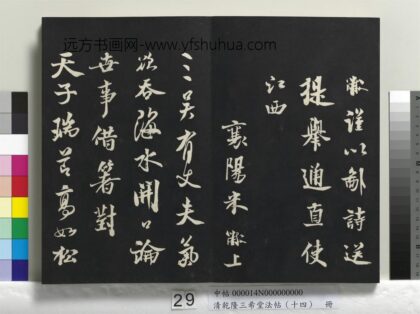 远方书画网-www.yfshuhua.com
黻謹以鄙詩送
提舉通直使
江西
襄陽米黻上
三吳有丈夫氣
欲吞海水開口論
世事借箸對
天子瑞高如松
29
中帖 000014N000000000
清乾隆三希堂法帖(十四) 冊